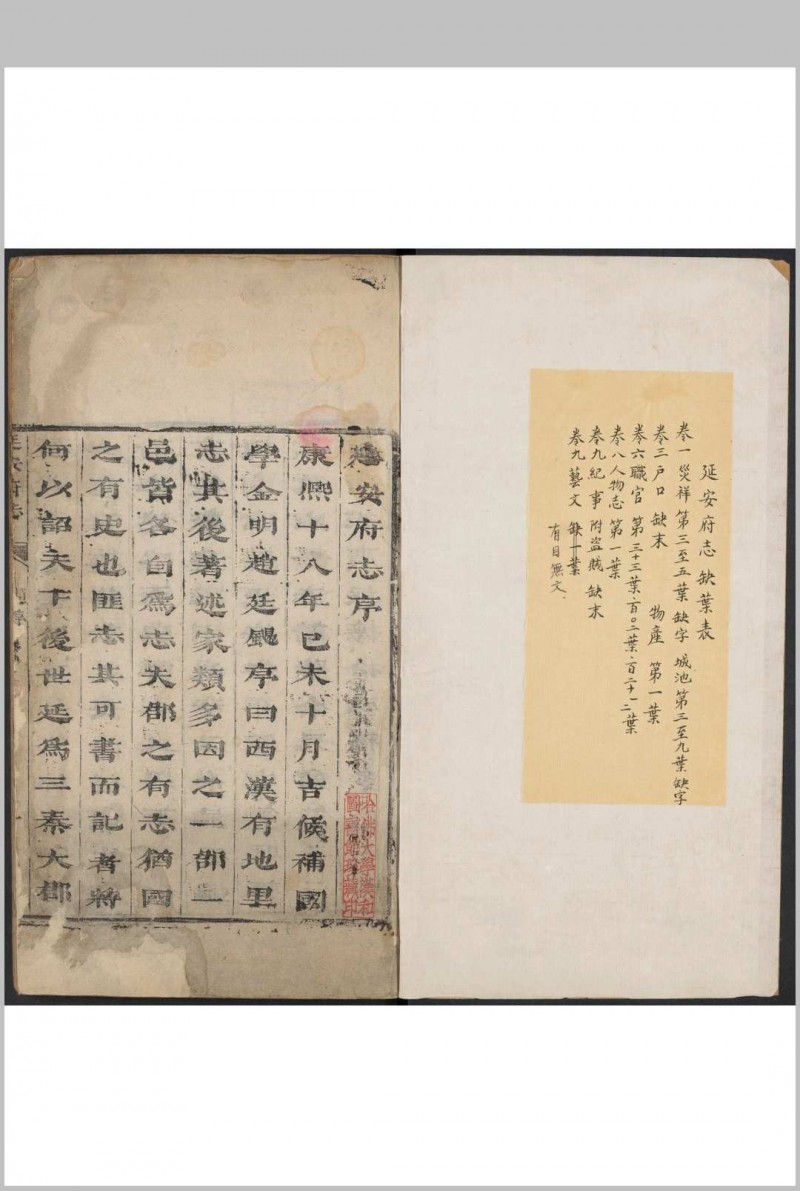 延安府志缺葉表
卷一 災祥 第三至五葉 缺字 城池 第三至九葉 缺字
卷三 戶口 缺末 物產 第一葉
卷六 職官 第三十三葉·百〇二葉·百二十一二葉
卷八 人物志 第一葉
卷九 紀事 附盜賊 缺末
卷九 藝文 缺一葉
有目無文.
延安府志序
康熙十八年己未十月吉候補國
學金明趙廷颺序曰西漢有地里
志其後著述家類多因之一郡一
邑皆各自為志夫郡之有志猶國
之有史也匪志其可書而記者將
何以詔天下後世延為三秦大郡
哈佛大學漢和
圖書館珍藏印
延安府志